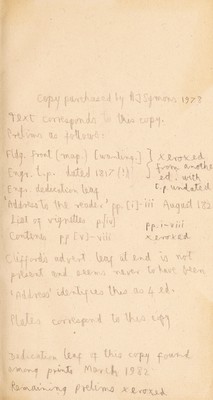 Copy purchased by RJ Symons 1972
Text corresponds to this copy.
Prelims as follows:
Fldg. front (map.) [wanting.] } xeroxed
Engr. t.p. dated 1817 (!) } from another
ed. with
t.p. undated
Engr. dedication leaf
'Address to the reader' pp. [i]-iii August 182
List of vignettes p[iv] pp. i-viii
Contents pp [v]-viii xeroxed
Clifford's advert leaf at end is not
present and seems never to have been
'Address' identifies this as 4 ed.
Plates correspond to this copy
Dedication leaf of this copy found
among prints March 1982
Remaining prelims xeroxed